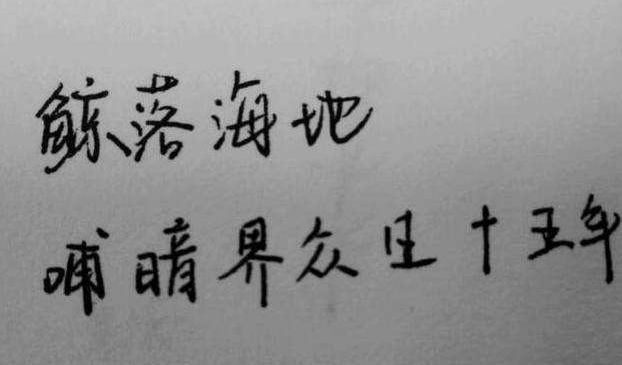 鲸落海地
哺暗界众生十五年